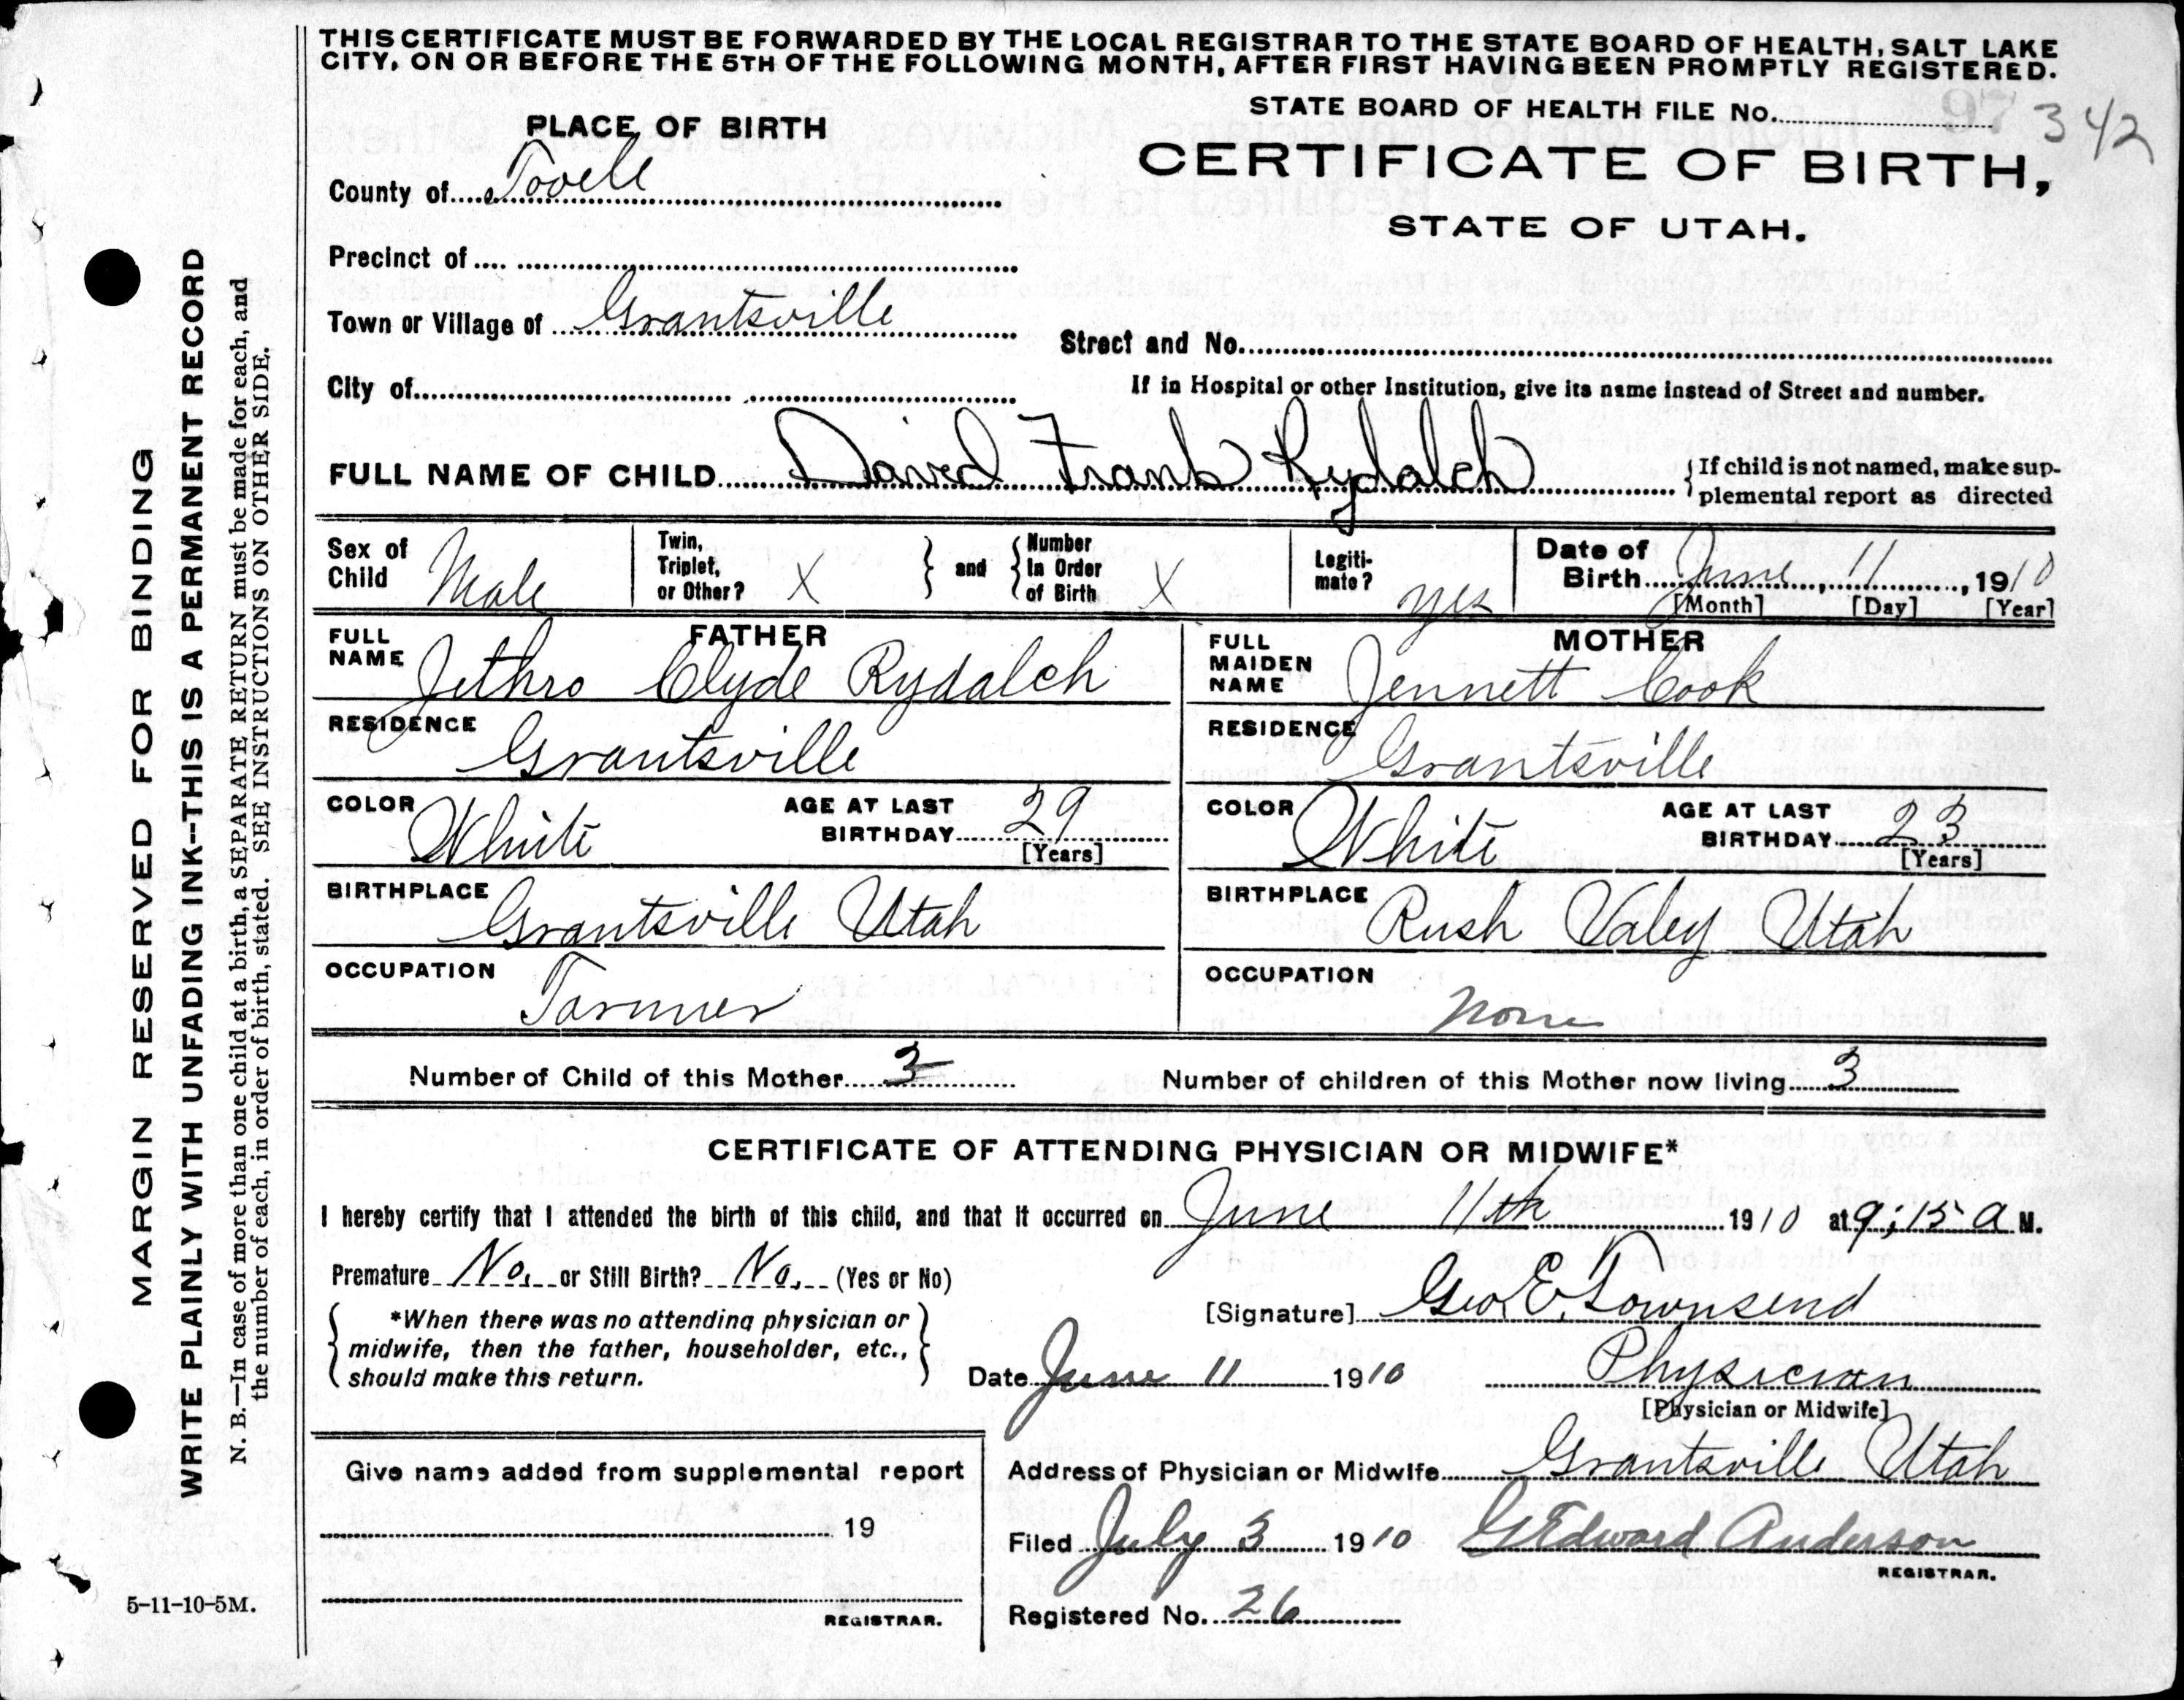 THIS CERTIFICATE MUST BE FORWARDED BY THE LOCAL REGISTRAR TO THE STATE BOARD OF HEALTH, SALT LAKE
CITY, ON OR BEFORE THE 5TH OF THE FOLLOWING MONTH, AFTER FIRST HAVING BEEN PROMPTLY REGISTERED.
STATE BOARD OF HEALTH FILE No. 342
PLACE OF BIRTH
CERTIFICATE OF BIRTH,
County of Tooele
STATE OF UTAH.
Precinct of
Town or Village of Grantsville
Street and No.
City of
If in Hospital or other Institution, give its name instead of Street and number.
FULL NAME OF CHILD David Frank Rydalch
{If child is not named, make sup-
plemental report as directed
Sex of Child Male
Twin, Triplet, or Other? X } and { Number In Order of Birth X
Legiti-mate? yes
Date of Birth June, 11, 1910
[Month] [Day] [Year]
FATHER
FULL NAME Jethro Clyde Rydalch
MOTHER
FULL MAIDEN NAME Jennett Cook
RESIDENCE Grantsville
RESIDENCE Grantsville
COLOR White AGE AT LAST BIRTHDAY 29 [Years]
COLOR White AGE AT LAST BIRTHDAY 23 [Years]
BIRTHPLACE Grantsville Utah
BIRTHPLACE Rush Valey Utah
OCCUPATION Farmer
OCCUPATION None
Number of Child of this Mother 3 Number of children of this Mother now living 3
CERTIFICATE OF ATTENDING PHYSICIAN OR MIDWIFE*
I hereby certify that I attended the birth of this child, and that it occurred on June 11th 1910 at 9;15 a M.
Premature No. or Still Birth? No. (Yes or No)
{ *When there was no attending physician or
midwife, then the father, householder, etc.,
should make this return. }
[Signature] Geo. E. Townsend
Date June 11 1910 Physician
[Physician or Midwife]
Give name added from supplemental report
19
REGISTRAR.
Address of Physician or Midwife Grantsville Utah
Filed July 3 1910 G Edward Anderson
REGISTRAR.
Registered No. 26
MARGIN RESERVED FOR BINDING
WRITE PLAINLY WITH UNFADING INK--THIS IS A PERMANENT RECORD
N. B.—In case of more than one child at a birth, a SEPARATE RETURN must be made for each, and
the number of each, in order of birth, stated. SEE INSTRUCTIONS ON OTHER SIDE.
5-11-10-5M.